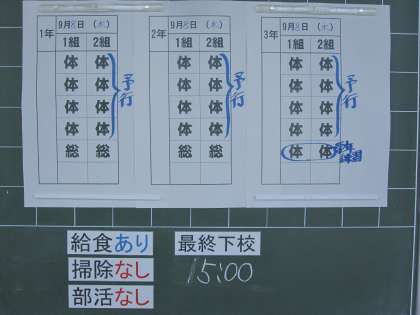 1年
9月8日 (水)
1組 2組
体 体
体 体
体 体
体 体
総 総
予行
2年
9月8日 (水)
1組 2組
体 体
体 体
体 体
体 体
総 総
予行
3年
9月8日 (水)
1組 2組
体 体
体 体
体 体
体 体
体 体
予行
給食あり
掃除なし
部活なし
最終下校
15:00